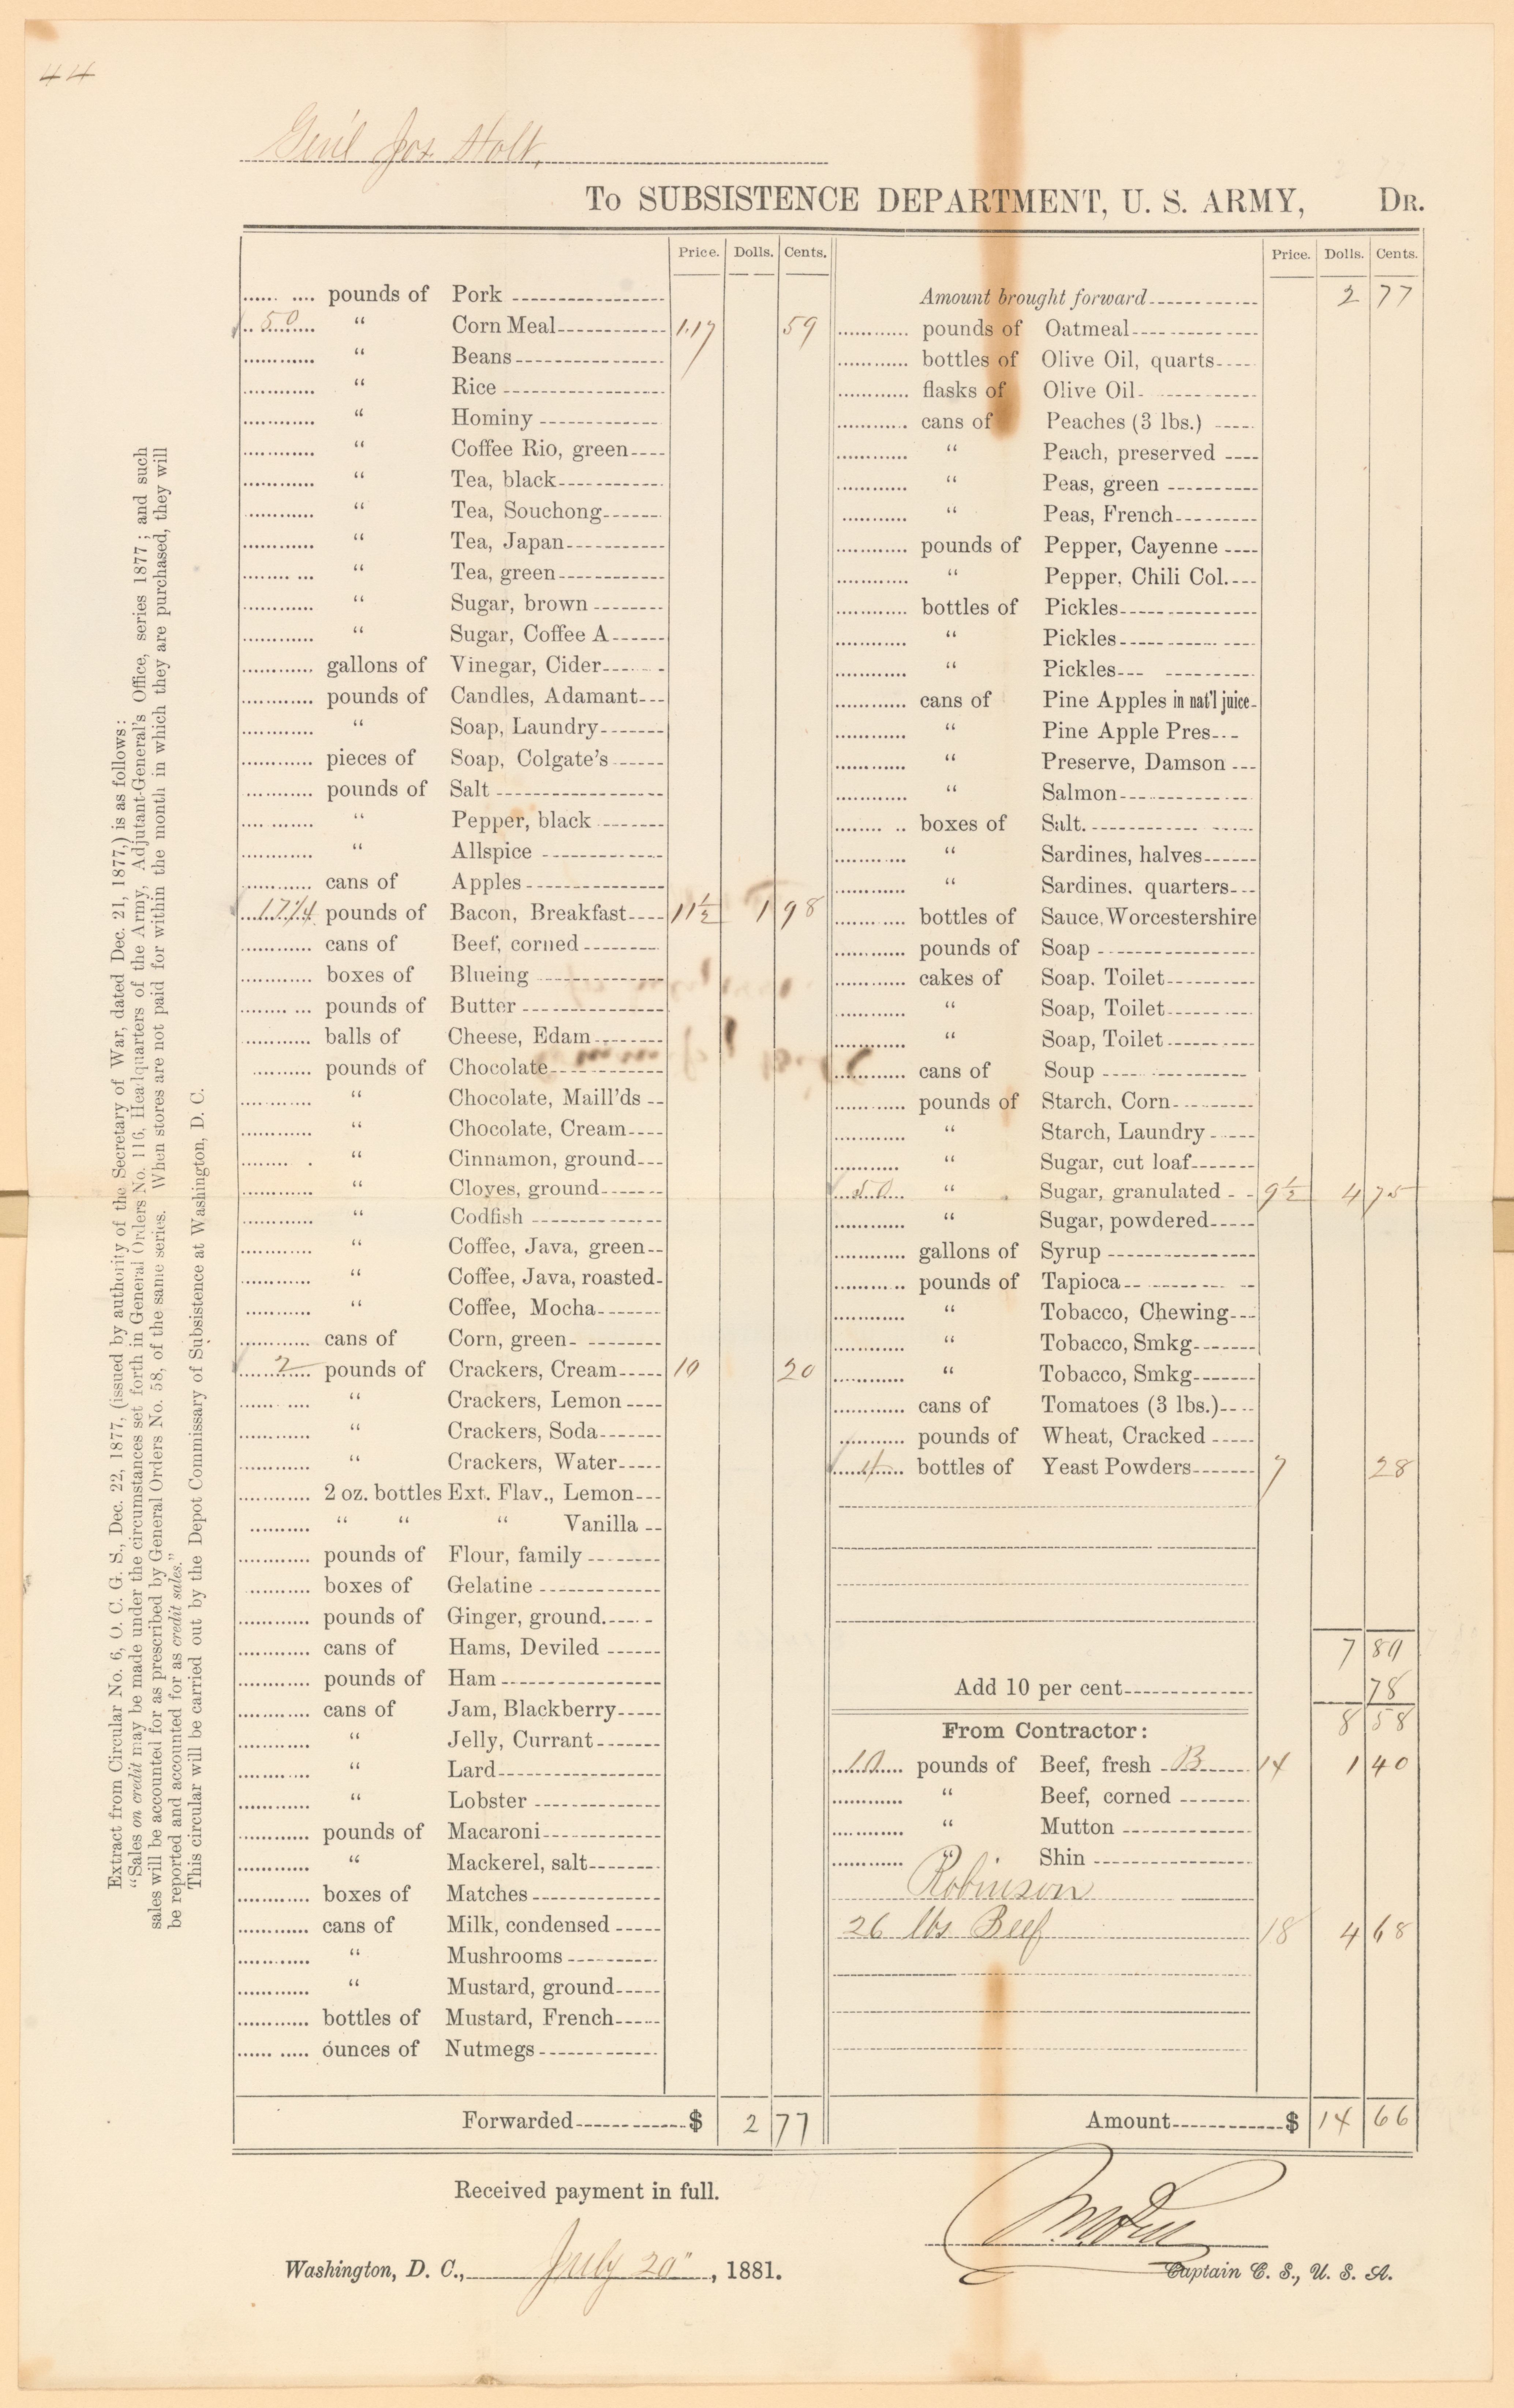 44
Gen'l Jos Holt,
To SUBSISTENCE DEPARTMENT, U. S. ARMY, DR.
Price. Dolls. Cents.
pounds of Pork
50 “ Corn Meal 1.17 59
“ Beans
“ Rice
“ Hominy
“ Coffee Rio, green
“ Tea, black
“ Tea, Souchong
“ Tea, Japan
“ Tea, green
“ Sugar, brown
“ Sugar, Coffee A
gallons of Vinegar, Cider
pounds of Candles, Adamant
“ Soap, Laundry
pieces of Soap, Colgate's
pounds of Salt
“ Pepper, black
“ Allspice
cans of Apples
17 1/4 pounds of Bacon, Breakfast 11 1/2 1 98
cans of Beef, corned
boxes of Blueing
pounds of Butter
balls of Cheese, Edam
pounds of Chocolate
“ Chocolate, Maill'ds
“ Chocolate, Cream
“ Cinnamon, ground
“ Cloves, ground
“ Codfish
“ Coffee, Java, green
“ Coffee, Java, roasted
“ Coffee, Mocha
cans of Corn, green
2 pounds of Crackers, Cream 10 20
“ Crackers, Lemon
“ Crackers, Soda
“ Crackers, Water
2 oz. bottles Ext. Flav., Lemon
“ “ “ Vanilla
pounds of Flour, family
boxes of Gelatine
pounds of Ginger, ground.
cans of Hams, Deviled
pounds of Ham
cans of Jam, Blackberry
“ Jelly, Currant
“ Lard
“ Lobster
pounds of Macaroni
“ Mackerel, salt
boxes of Matches
cans of Milk, condensed
“ Mushrooms
“ Mustard, ground
bottles of Mustard, French
ounces of Nutmegs
Forwarded $ 2 77
Price. Dolls. Cents.
Amount brought forward 2 77
pounds of Oatmeal
bottles of Olive Oil, quarts
flasks of Olive Oil
cans of Peaches (3 lbs.)
“ Peach, preserved
“ Peas, green
“ Peas, French
pounds of Pepper, Cayenne
“ Pepper, Chili Col.
bottles of Pickles
“ Pickles
“ Pickles
cans of Pine Apples in nat'l juice
“ Pine Apple Pres
“ Preserve, Damson
“ Salmon
boxes of Salt.
“ Sardines, halves
“ Sardines. quarters
bottles of Sauce, Worcestershire
pounds of Soap
cakes of Soap. Toilet
“ Soap, Toilet
“ Soap, Toilet
cans of Soup
pounds of Starch, Corn
“ Starch, Laundry
“ Sugar, cut loaf
50 “ Sugar, granulated 9 1/2 4 75
“ Sugar, powdered
gallons of Syrup
pounds of Tapioca
“ Tobacco, Chewing
“ Tobacco, Smkg
“ Tobacco, Smkg
cans of Tomatoes (3 lbs.)
pounds of Wheat, Cracked
4 bottles of Yeast Powders 7 28
7 80
Add 10 per cent 78
8 58
From Contractor:
10 pounds of Beef, fresh B 14 1 40
“ Beef, corned
“ Mutton
“ Shin
Robinson
26 lbs Beef 18 4 68
Amount $ 14 66
Received payment in full.
Washington, D. C., July 20", 1881.
Captain C. S., U. S. A.
Extract from Circular No. 6, O. C. G. S., Dec. 22, 1877, (issued by authority of the Secretary of War, dated Dec. 21, 1877,) is as follows:
“Sales on credit may be made under the circumstances set forth in General Orders No. 116, Headquarters of the Army, Adjutant-General's Office, series 1877; and such
sales will be accounted for as prescribed by General Orders No. 58, of the same series. When stores are not paid for within the month in which they are purchased, they will
be reported and accounted for as credit sales.”
This circular will be carried out by the Depot Commissary of Subsistence at Washington, D. C.